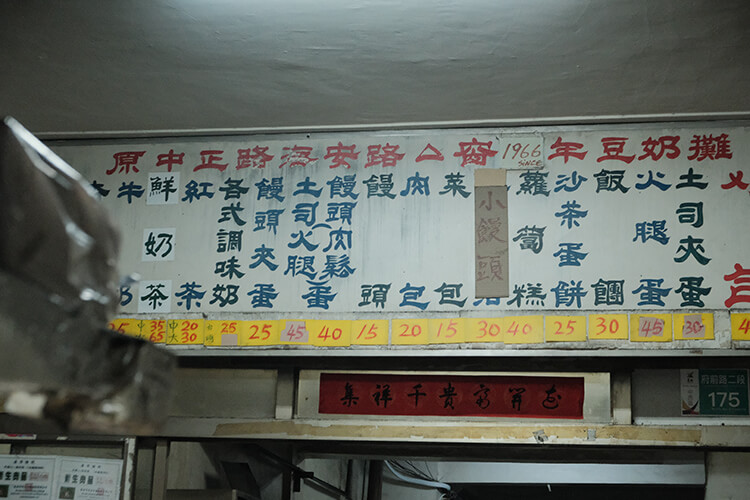 原中正路海安路△窩1966年豆奶攤
SINCE
牛奶
鮮奶茶
紅茶
各式調味奶
饅頭夾蛋
土司火腿蛋
饅頭(肉鬆蛋
饅頭
肉包
菜包
小饅頭
蘿蔔糕
沙茶蛋餅
飯糰
火腿蛋
土司夾蛋
25 中35 中20 25 25 45 40 15 20 15 30 40 25 30 45 30
大65 大30
開富貴千祥集
府前路二段
175